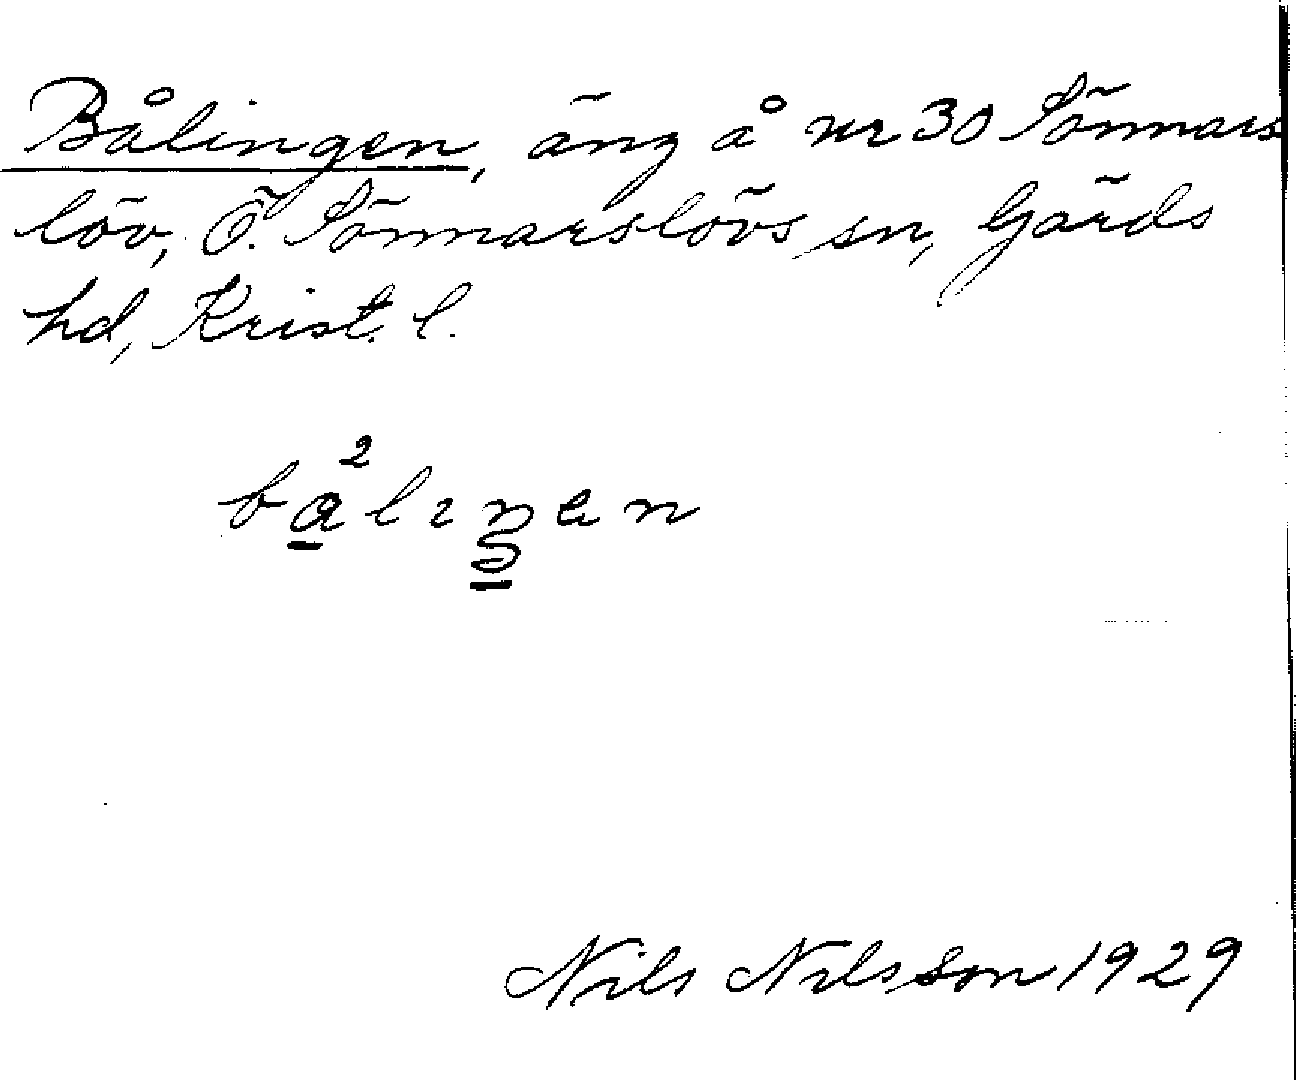 Bålingen, äng å nr 30 Sönnars
löv, Ö. Sönnarslövs sn, Gärds
hd, Krist. l.
bɑ²lıŋen
Nils Nilsson 1929